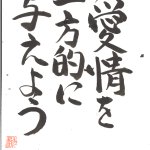 愛情を
一方的に
与えよう